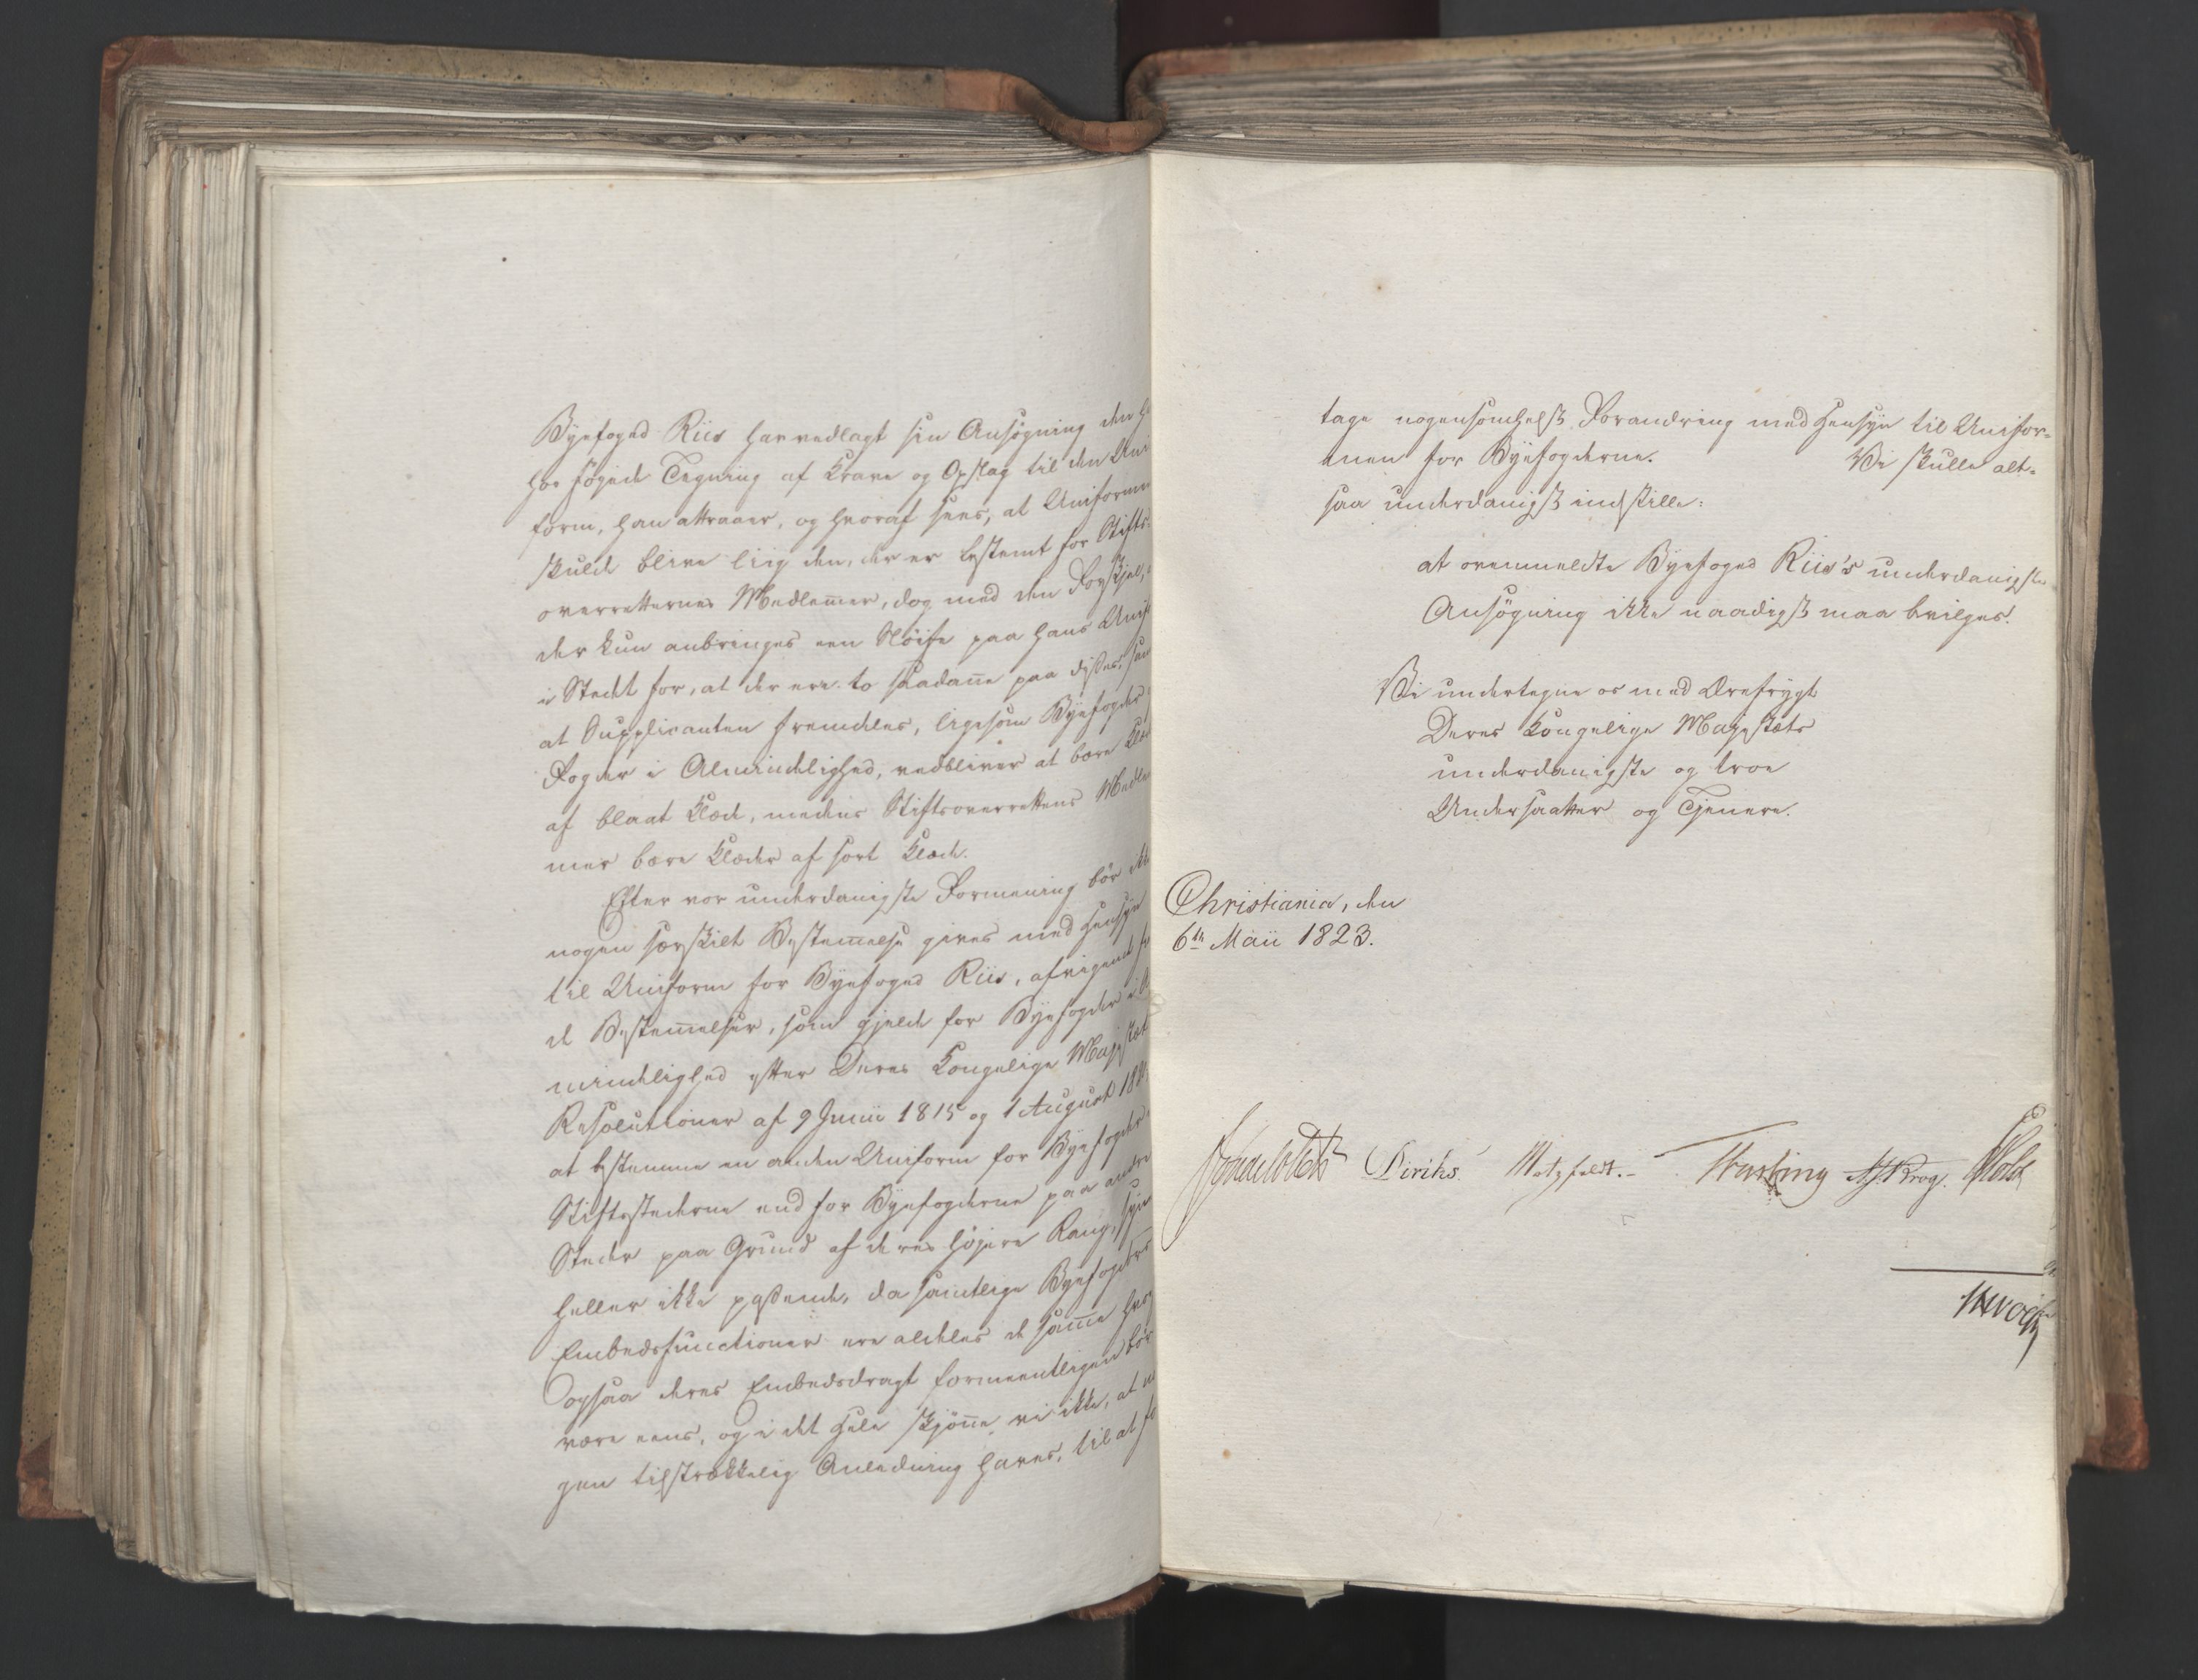 Byefoged Riis har vedlagt sin Ansøgning den
hos føiede Tegning af Krave og Opslag til den Uni
form, han attraaer, og hvoraf sees, at Uniformen
skulde blive liig den, der er bestemt for Stifts-
overretternes Medlemer, dog med den Forskjel,
der kun anbringes een Sløife paa hans Unif
i Stedet for, at der ere to saadane paa disses, sam
at Supplicanten fremdeles, ligesom Byefogder
Fogder i Almindelighed, vedbliver at bære Klæ
af blaat Klæde, medens Stiftsoverrettens Medle
mer bære Klæder af sort Klæde.
Efter vor underdanigste Formening bør ikke
nogen særskilt Bestemelse gives med Hensyn
til Uniform for Byefoged Riis, afvigende fra
de Bestemelser, som gjelde for Byefogder i Al
mindelighed efter Deres Kongelige Majestæt
Resolutioner af 9 Junii 1815 og 1 August 18
at bestemme en anden Uniform for Byefogder
Stiftsstæderne end for Byefogderne paa andre
Steder paa Grund af deres høiere Rang, syn
heller ikke passende, da samtlige Byefogders
Embedsfunctioner ere aldeles de same hvor
ogsaa deres Embedsdragt formeentligen bør
være eens, og i det Hele skjøne vi ikke, at no
gen tilstrækkelig Anledning haves, til at fo
tage nogensomhelst Forandring med Hensyn til Unifor-
men for Byefogderne. Vi skulle alt-
saa underdanigst indstille:
at ovenmeldte Byefoged Riis's underdanigste
Ansøgning ikke naadigst maa bevilges.
Vi undertegne os med Ærefrygt
Deres Kongelige Majestæts
underdanigste og troe
Undersaatter og Tjenere.
Christiania, den
6te Maii 1823.
Diriks. Motzfeldt. Krog. Holst